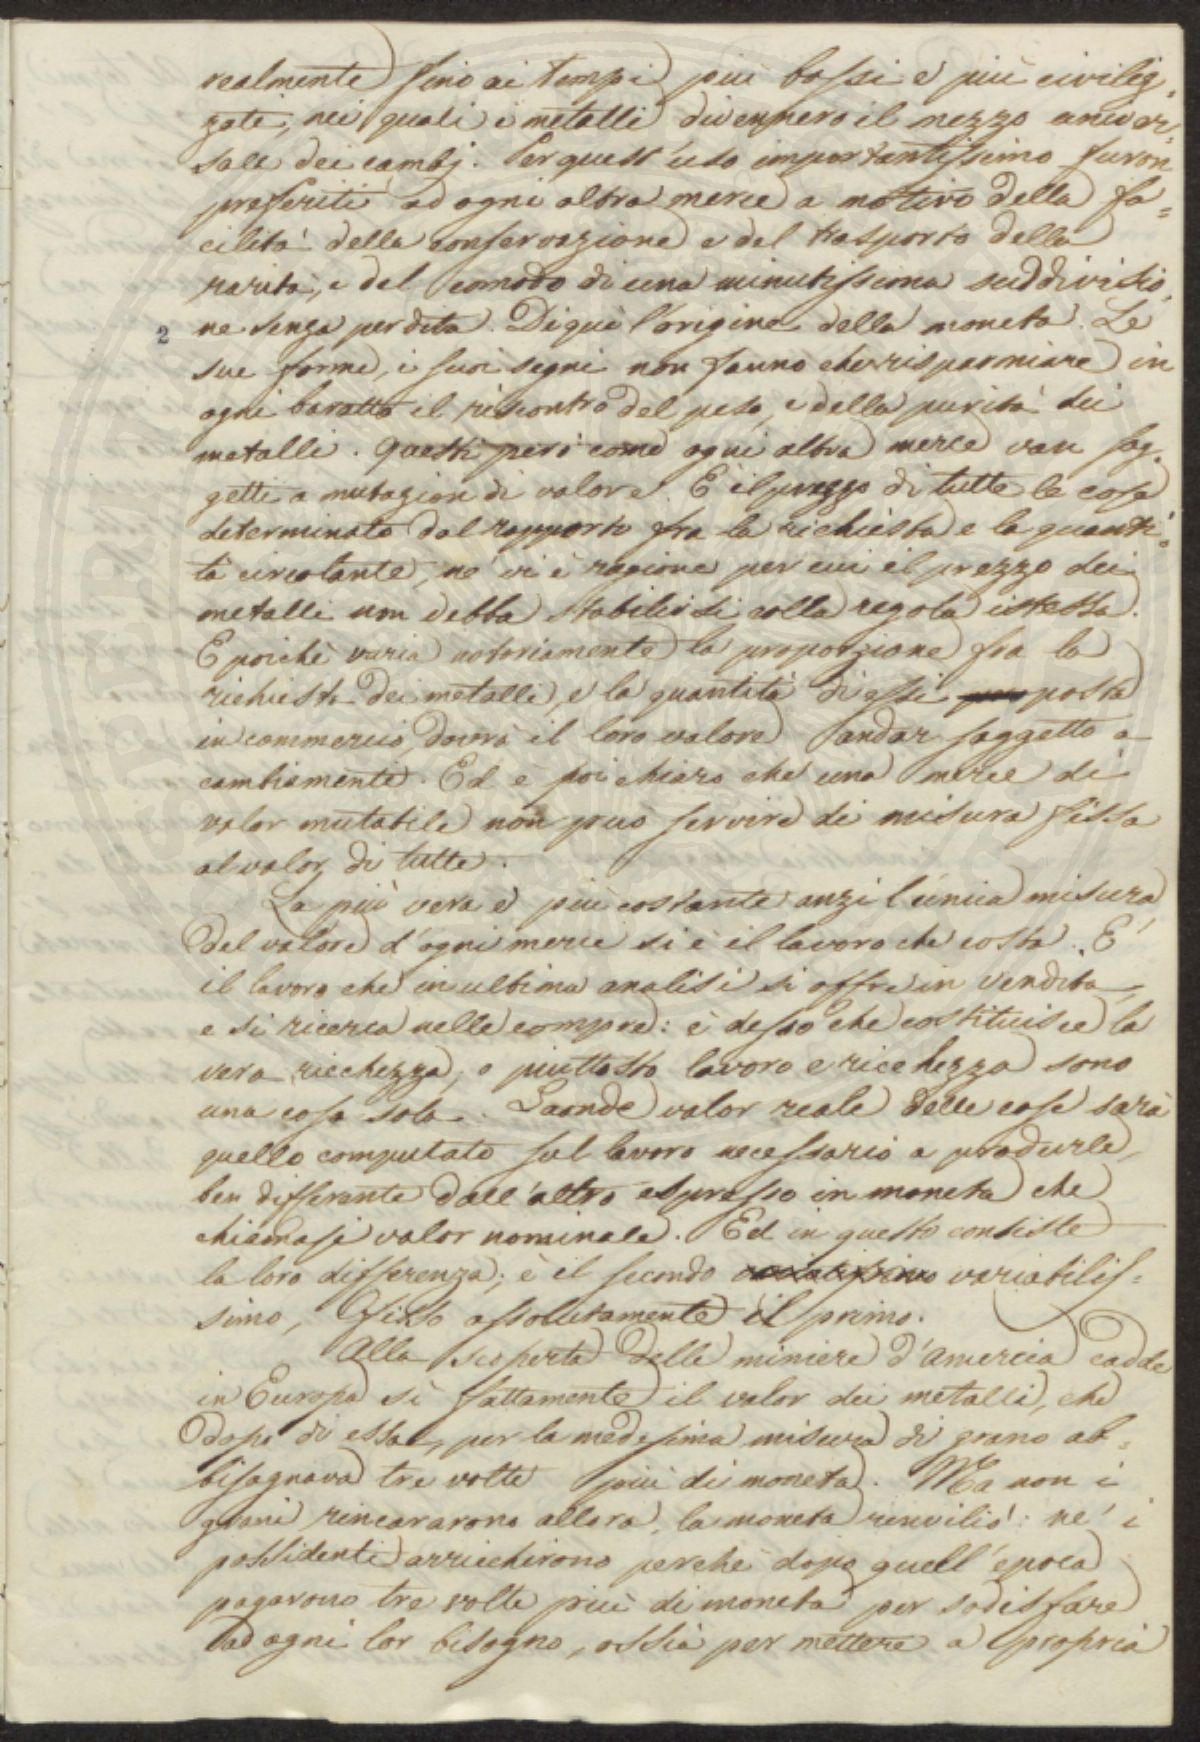 realmente fino ai tempi più bassi e più civiliz=
zati, nei quali i metalli divennero il mezzo univer=
sale dei cambj. Per quest'uso importantissimo furon
preferiti ad ogni altra merce a motivo della fa=
cilità della conservazione e del trasporto della
rarità, e del comodo di una minutissima suddivisio=
2 ne senza perdita. Di qui l'origine della moneta. Le
sue forme, i suoi segni non fanno che risparmiare in
ogni baratto il riscontro del peso, e della purità dei
metalli. Questi però come ogni altra merce van sog=
getti a mutazion di valore. E il prezzo di tutte le cose
determinato dal rapporto fra la richiesta e la quanti=
tà circolante, nè vi è ragione per cui il prezzo dei
metalli non debba stabilirsi colla regola istessa.
E poichè varia notoriamente la proporzione fra la
richiesta dei metalli, e la quantità di essi posta
in commercio, dovrà il loro valore andar soggetto a
cambiamenti. Ed è poi chiaro che una merce di
valor mutabile non può servire di misura fissa
al valor di tutte.
La più vera e più costante anzi l'unica misura
del valore d'ogni merce si è il lavoro che costa. E'
il lavoro che in ultima analisi si offre in vendita,
e si ricerca nelle compre: è desso che costituisce la
vera ricchezza, o piuttosto lavoro e ricchezza sono
una cosa sola. Laonde valor reale delle cose sarà
quello computato sul lavoro necessario a produrle,
ben differente dall'altro espresso in moneta che
chiamasi valor nominale. Ed in questo consiste
la loro differenza; è il secondo variabilis=
simo, fisso assolutamente il primo.
Alla scoperta delle miniere d'America cadde
in Europa sì fattamente il valor dei metalli, che
dopo di essa, per la medesima misura di grano ab=
bisognava tre volte più di moneta. Ma non i
grani rincararono allora, la moneta rinviliò: nè i
possidenti arricchirono perchè dopo quell'epoca
pagarono tre volte più di moneta per sodisfare
ad ogni lor bisogno, ossia per mettere a propria